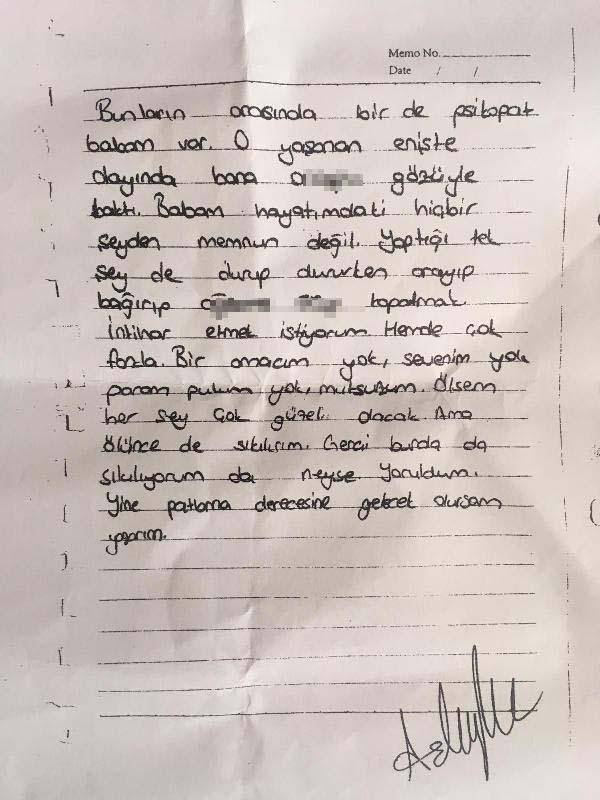 Memo No.
Date / /
Bunların arasında bir de psikopat
babam var. O yaşanan enişte
dayında bana gözüyle
baktı. Babam hayatımdaki hiçbir
şeyden memnun değil. Yaptığı tek
şey de durup dururken arayıp
bağırıp kapatmak.
İntihar etmek istiyorum. Hemde çok
fazla. Bir amacım yok, sevenim yok
param pulum yok, mutsuzum. Ölsem
her şey çok güzel olacak. Ama
ölünce de sıkılırım. Gerçi burda da
sıkılıyorum da neyse yoruldum.
Yine patlama derecesine gelecek olursam
yazarım.